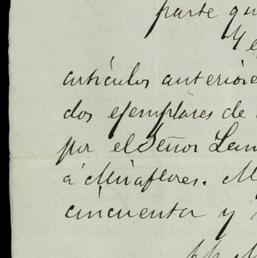 parte
artículos anteriore
dos ejemplares de
por el Señor Lam
á Miraflores. M
cincuenta y